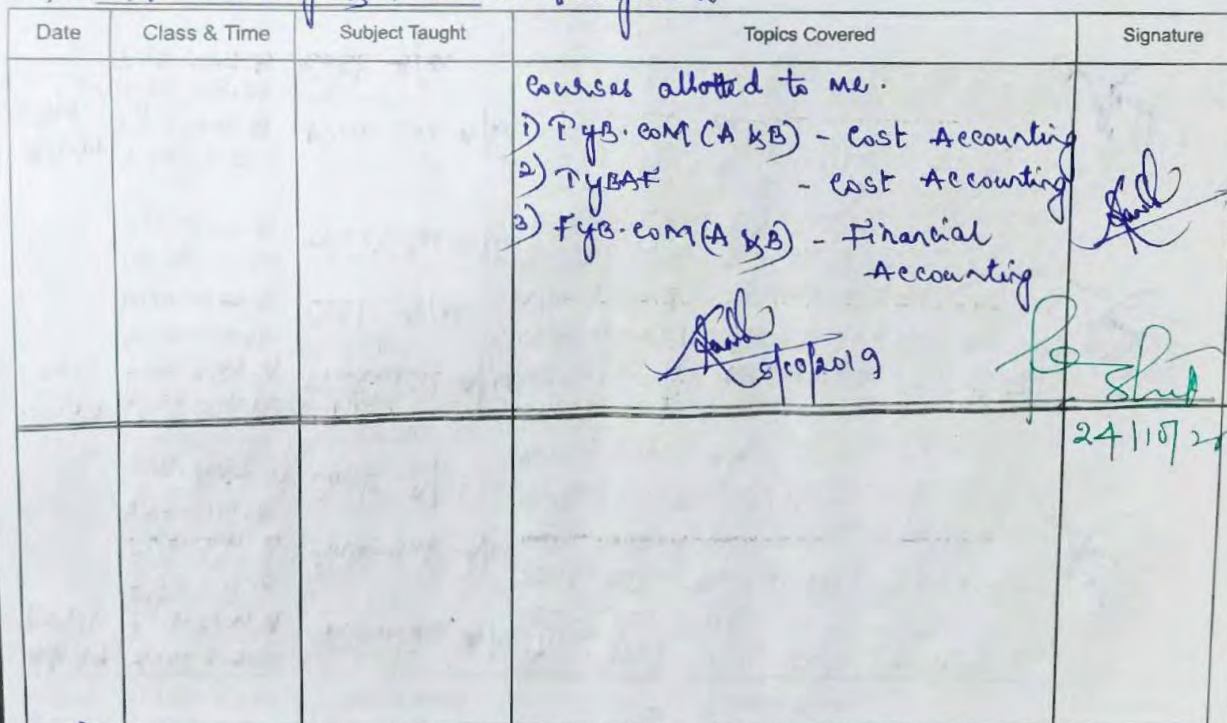 Date Class & Time Subject Taught Topics Covered Signature
Courses allotted to me.
1) TyB.COM (A & B) - Cost Accounting
2) TyBAF - Cost Accounting
3) FyB.COM (A & B) - Financial
Accounting
5/10/2019
24/10/2